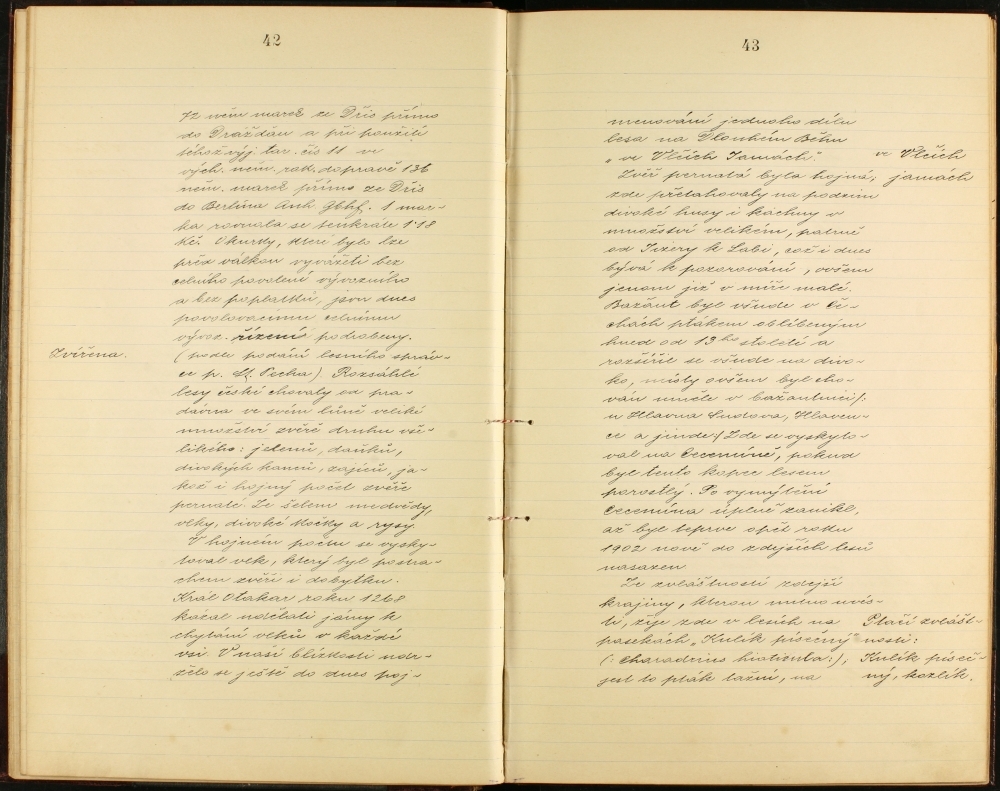 42
72 něm marek ze Dřis přímo
do Drážďan a při použití
téhož výj. tar. čís 11 ve
vých. něm. rak. dopravě 136
něm. marek přímo ze Dřis
do Berlína Anh. Gbhf. 1 mar-
ka rovnala se tenkráte 1·18
Kč. Okurky, které bylo lze
přes válkou vyvážeti bez
celního povolení vývozního
a bez poplatků, jsou dnes
povolovacímu celnímu
vývoz. řízení podrobeny.
Zvířena.
(podle podání lesního správ-
ce p. St. Pecka) Rozsáhlé
lesy české chovaly od pra-
dávna ve svém lůně veliké
množství zvěře druhu vše-
likého: jelenů, daňků,
divokých kanců, zajíců, ja-
kož i hojný počet zvěře
pernaté. Ze šelem medvědy,
vlky, divoké kočky a rysy.
V hojném počtu se vysky-
toval vlk, který byl postra-
chem zvěři i dobytku.
Král Otakar roku 1268
kázal udělati jámy k
chytání vlků v každé
vsi. V naší blízkosti udr-
želo se ještě do dnes poj-
43
menování jednoho dílu
lesa na Dlouhém Běhu
„ve Vlčích Jamách."
ve Vlčích
jamách
Zvěř pernatá byla hojná;
zde přetahovaly na podzim
divoké husy i kachny v
množství velikém, patrně
od Jizery k Labi, což i dnes
bývá k pozorování, ovšem
jenom již v míře malé.
Bažant byl všude v Če-
chách ptákem oblíbeným
hned od 13ho století a
rozšířil se všude na divo-
ko, místy ovšem byl cho-
ván uměle v bažantnici/:
u Hlavna Sudova, Hlaven-
ce a jinde:/ Zde se vyskyto-
val na Cecemíně, pokud
byl tento kopec lesem
porostlý. Po vymýtění
Cecemína úplně zanikl,
až byl teprve opět roku
1902 nově do zdejších lesů
nasazen
Ze zvláštností zdejší
krajiny, kterou nutno uvés-
ti, žije zde v lesích na
pasekách „Kulík písečný"
(: charadrius hiaticula:),
jest to pták tažní, na
Ptačí zvlášt-
nosti:
Kulík píseč-
ný, kozlík.